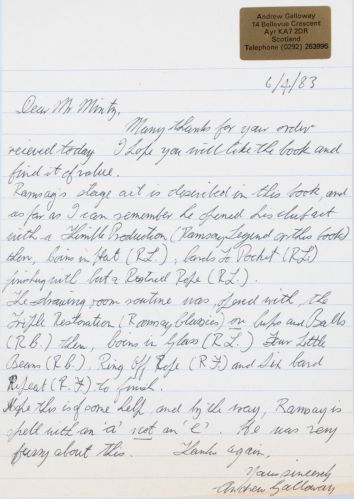 Andrew Galloway
14 Bellevue Crescent
Ayr KA7 2DR
Scotland
Telephone (0292) 263995
6/4/83
Dear Mr Mintz,
Many thanks for your order
recieved today. I hope you will like the book and
find it of value.
Ramsay's stage act is described in this book, and
as far as I can remember he opened his club act
with a Thimble Production (Ramsay Legend or this book)
then, Coins in Hat (R.L.), Cards to Pocket (R.L.)
finishing with Cut & Restored Rope (R.L.).
The drawing room routine was, with, the
Triple Restoration (Ramsay Classics) or Cups and Balls
(R.B.) then, Coins in Glass (R.L.) Four Little
Beans (R.B.), Ring Off Rope (R.F) and Six Card
Repeat (R.F.) to finish.
Hope this is of some help, and by the way, Ramsay is
spelt with an 'a' not an 'e'. He was very
fussy about this. Thanks again,
Yours sincerely
Andrew Galloway